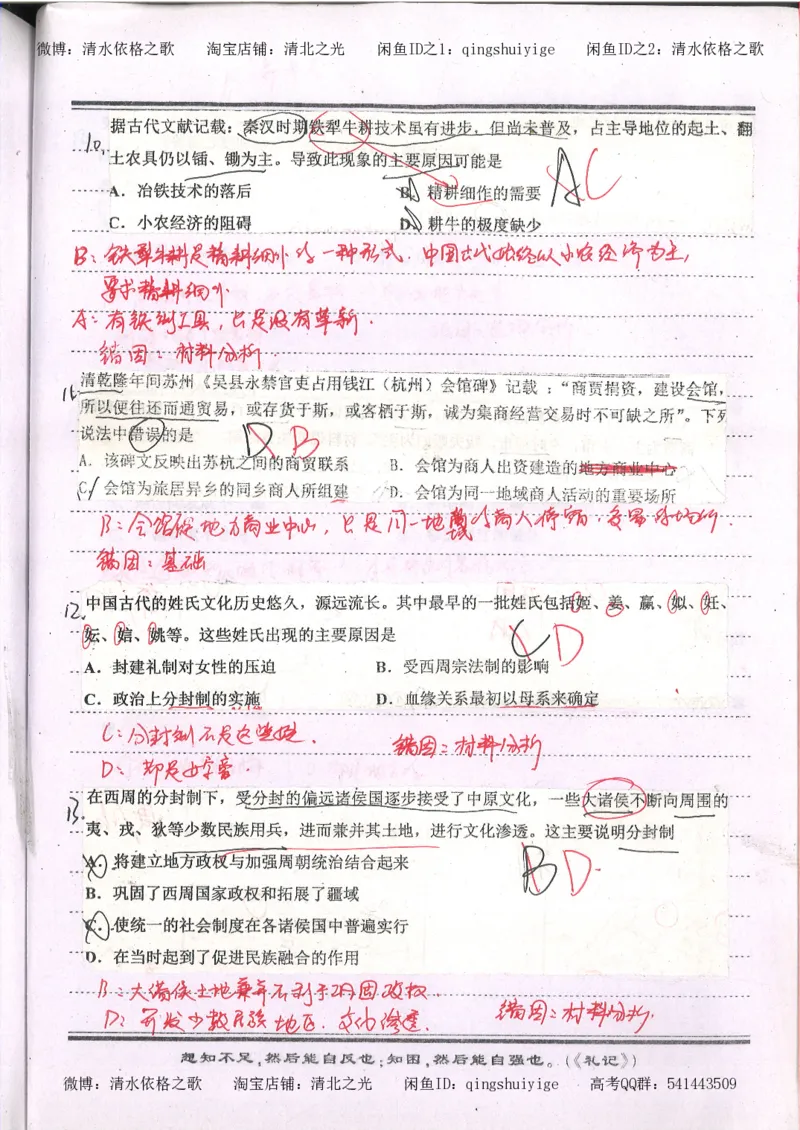 微博：清水依格之歌 淘宝店铺：清北之光 闲鱼ID之1：qingshuiyige 闲鱼ID之2：清水依格之歌
10.
据古代文献记载：秦汉时期铁犁牛耕技术虽有进步，但尚未普及，占主导地位的起土、翻
土农具仍以锸、锄为主。导致此现象的主要原因可能是
A．冶铁技术的落后 B．精耕细作的需要 A C
C．小农经济的阻碍 D．耕牛的极度缺少
B：铁犁牛耕是精耕细作的一种形式．中国古代始终以小农经济为主，
要求精耕细作
A：有铁制工具，只是没有革新．
错因：材料分析
11.
清乾隆年间苏州《吴县永禁官吏占用钱江（杭州）会馆碑》记载：“商贾捐资，建设会馆，
所以便往还而通贸易，或存货于斯，或客栖于斯，诚为集商经营交易时不可缺之所”。下列
说法中错误的是 D B
A．该碑文反映出苏杭之间的商贸联系 B．会馆为商人出资建造的地方商业中心
C．会馆为旅居异乡的同乡商人所组建 D．会馆为同一地域商人活动的重要场所
B：会馆 地方商业中心，只是同一地域的商人停留．交易的场所．
错因：基础
12.
中国古代的姓氏文化历史悠久，源远流长。其中最早的一批姓氏包括姬、姜、嬴、姒、妊、
妘、姞、姚等。这些姓氏出现的主要原因是 C D
A．封建礼制对女性的压迫 B．受西周宗法制的影响
C．政治上分封制的实施 D．血缘关系最初以母系来确定
C：分封制不是这些姓． 错因：材料分析
D：都是女字旁．
13.
在西周的分封制下，受分封的偏远诸侯国逐步接受了中原文化，一些大诸侯不断向周围的
夷、戎、狄等少数民族用兵，进而兼并其土地，进行文化渗透。这主要说明分封制
A．将建立地方政权与加强周朝统治结合起来 B D
B．巩固了西周国家政权和拓展了疆域
C．使统一的社会制度在各诸侯国中普遍实行
D．在当时起到了促进民族融合的作用
B：大诸侯土地兼并不利于巩固政权．
D：开发少数民族地区．文化渗透． 错因：材料分析．
想知不足，然后能自反也；知困，然后能自强也。（《礼记》）
微博：清水依格之歌 淘宝店铺：清北之光 闲鱼ID：qingshuiyige 高考QQ群：541443509